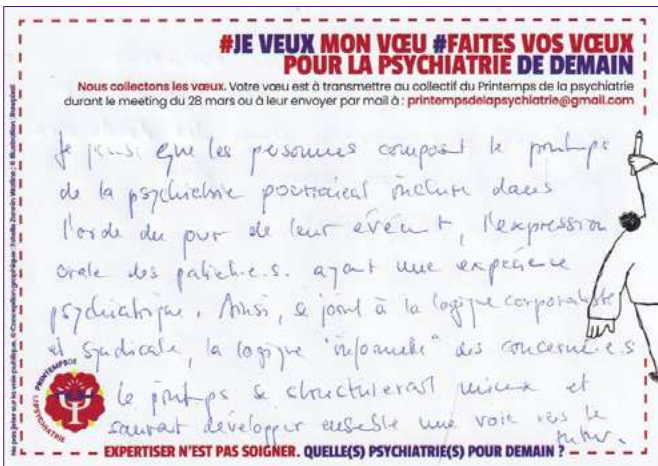 #JE VEUX MON VŒU #FAITES VOS VŒUX
POUR LA PSYCHIATRIE DE DEMAIN
Nous collectons les vœux. Votre vœu est à transmettre au collectif du Printemps de la psychiatrie
durant le meeting du 28 mars ou à leur envoyer par mail à : printempsdelapsychiatrie@gmail.com
Je pense que les personnes composant le printemps
de la psychiatrie pourraient inclure dans
l'ordre du jour de leur événement, l'expression
orale des patient.e.s. ayant une expérience
psychiatrique. Ainsi, se joint à la logique corporatiste
et syndicale, la logique "informelle" des concerné.e.s
le printemps se structurerait mieux et
saurait développer ensemble une voie vers le
futur.
PRINTEMPS DE
LA PSYCHIATRIE
EXPERTISER N'EST PAS SOIGNER. QUELLE(S) PSYCHIATRIE(S) POUR DEMAIN ?
Ne pas jeter sur la voie publique. © Conception graphique :